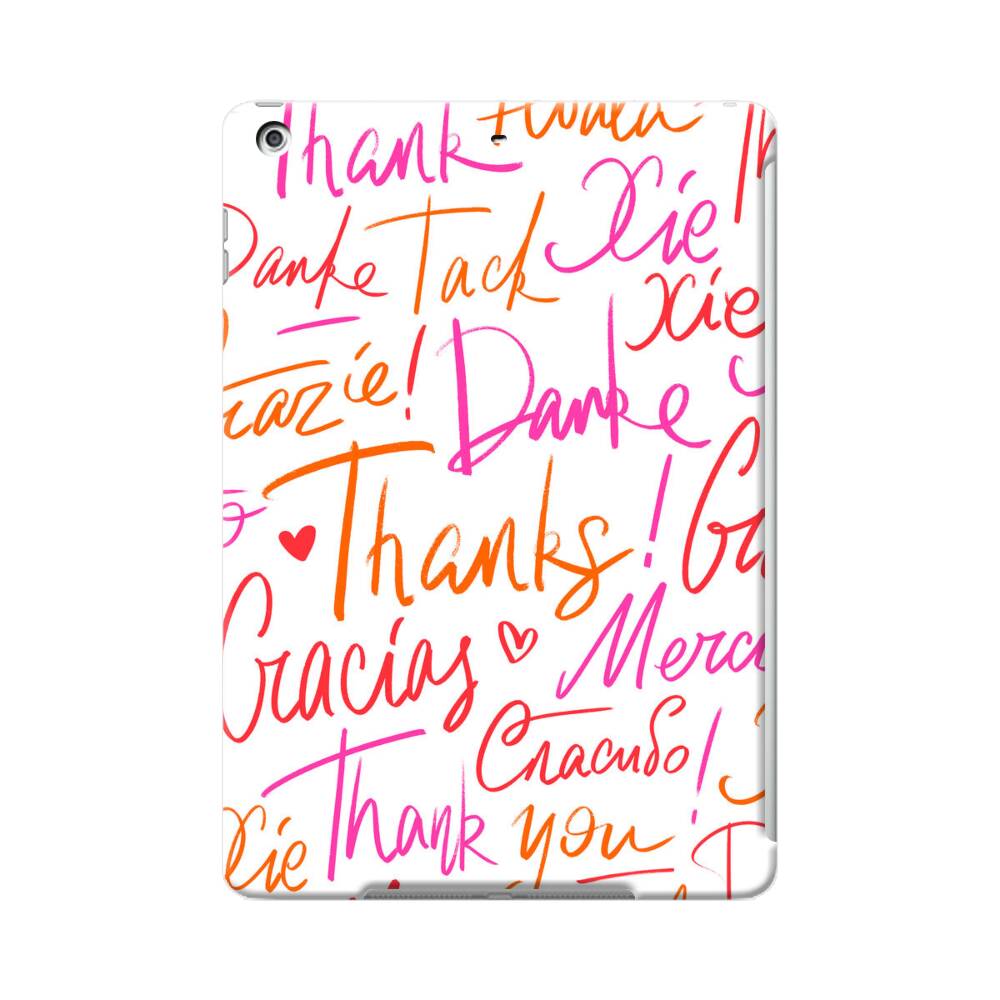 Thank
Xie
Danke Tack
Xie
Grazie! Danke
Thanks!
Gracias Merci
Спасибо!
Thank you
Xie